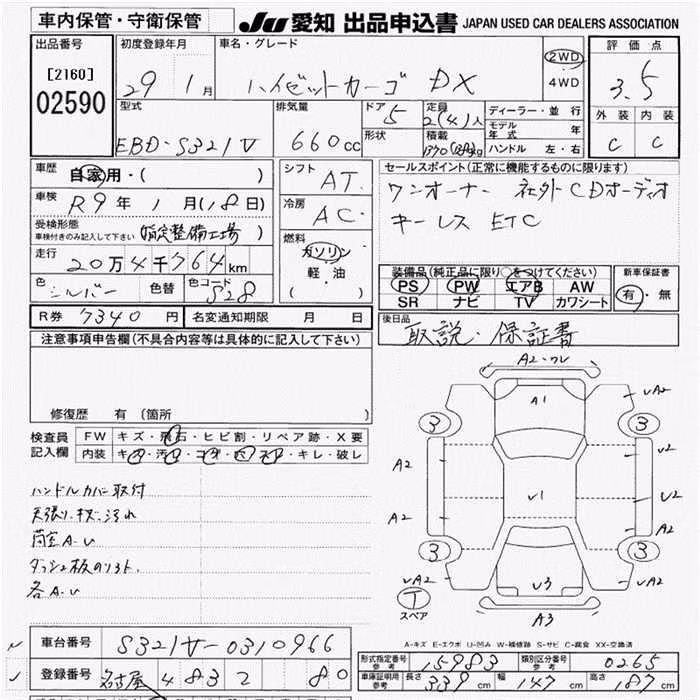 車内保管・守衛保管
JU 愛知 出品申込書 JAPAN USED CAR DEALERS ASSOCIATION
出品番号 [2160] 02590
初度登録年月 29年 1月
車名・グレード ハイゼットカーゴ DX
2WD 4WD
評価点 3.5
外装 内装
C C
型式 EBD-S321V
排気量 660cc
ドア 5
形状
定員 2(4)人
積載 kg
ディーラー・並行
モデル年式 年
ハンドル 左・右
車歴 自家用・( )
車検 R9年 1月(18日)
受検形態 車検付きのみ記入して下さい (指定整備工場)
走行 20万4千764km
色 シルバー 色替 色コード S28
シフト AT
冷房 AC
燃料 ガソリン 軽・油 ( )
セールスポイント(正常に機能するものに限ります)
ワンオーナー 社外CDオーディオ
キーレス ETC
装備品(純正品に限り○をつけてください)
PS PW エアB AW
SR ナビ TV カワシート
新車保証書 有・無
R券 7340円 名変通知期限 月 日
後日品 取説・保証書
注意事項申告欄(不具合内容等は具体的に記入して下さい)
修復歴 有(箇所 )
検査員記入欄
FW キズ・飛石・ヒビ割・リペア跡・X要
内装 キズ・汚れ・コゲ・穴・スレ・キレ・破レ
ハンドルカバー取付
天張り、キズ、汚れ
荷室A.U
ダッシュ板のリフト.
各A.U
A2・ワレ
A1
UA2
3 3
A2 U2
U1 U2
A2 A2
3 3
UA2 U3 UA2
T スペア
A3
A-キズ E-エクボ U-凹み W-補修跡 S-サビ C-腐食 XX-交換済
車台番号 S321V-0310966
登録番号 名古屋 483 2 80
形式指定番号 参考 15983
類別区分番号 参考 0265
車庫証明用 参考 長さ 339cm 幅 147cm 高さ 187cm